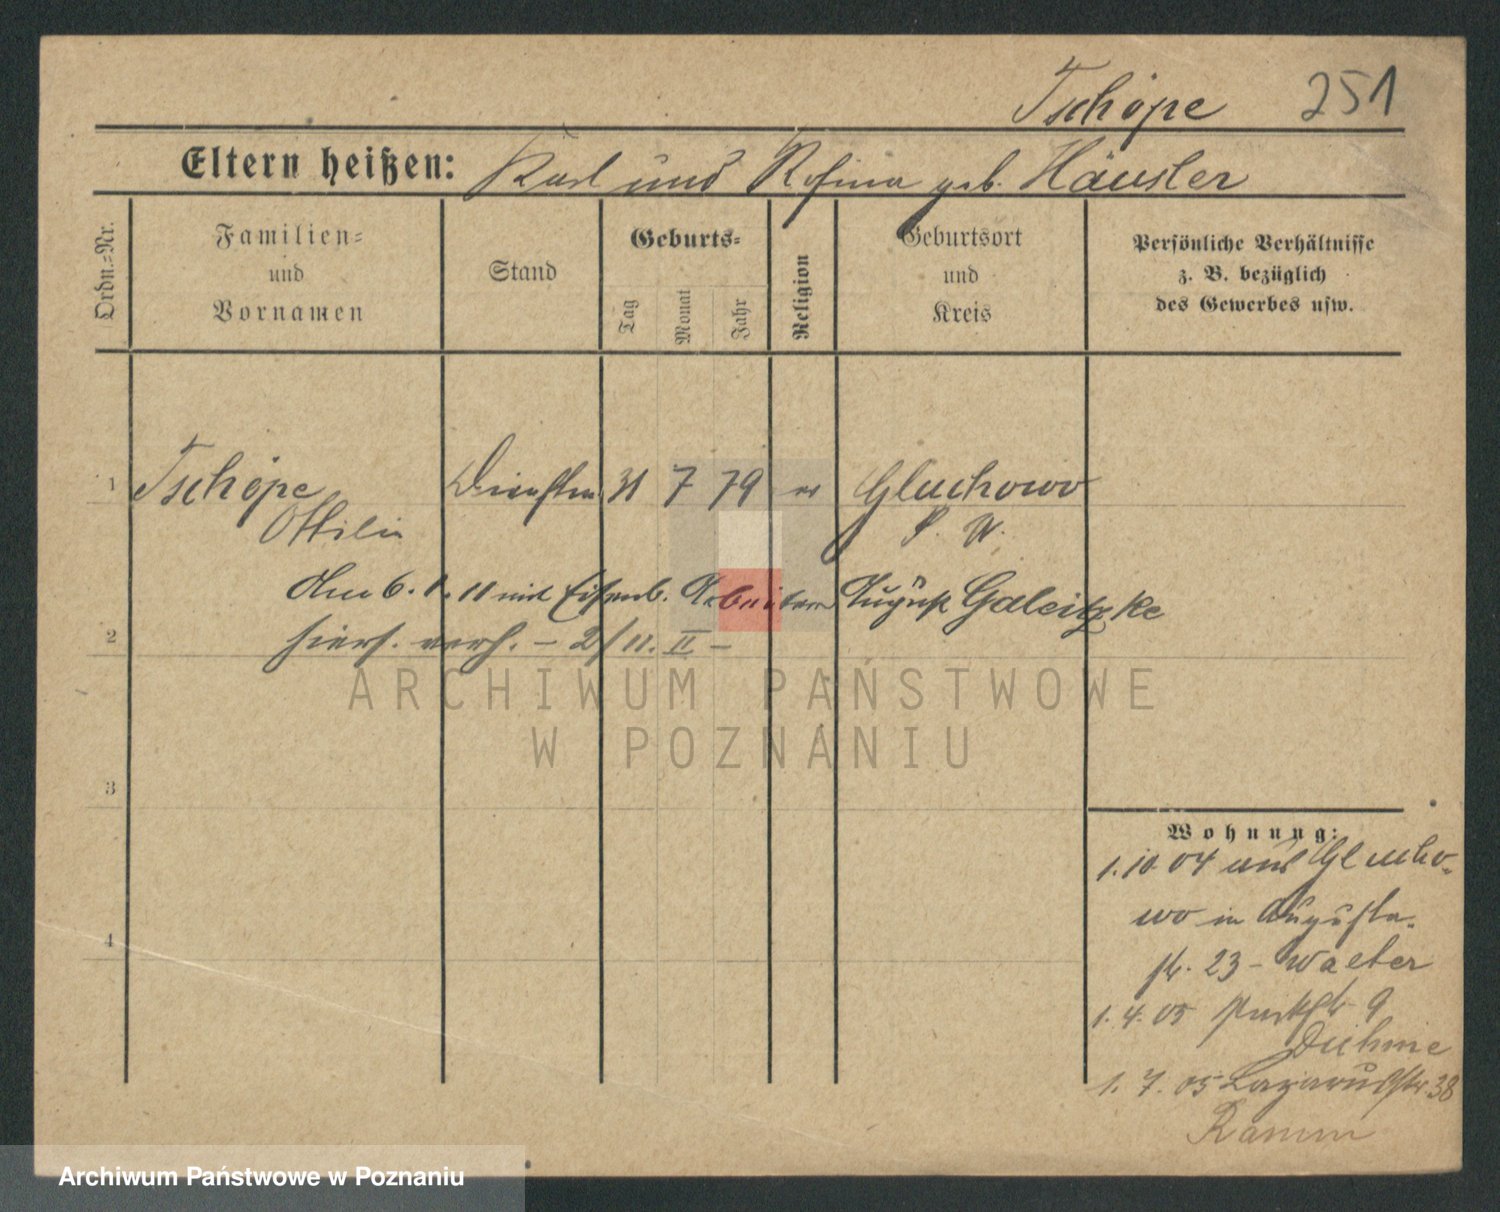 Tschöpe 251
Eltern heißen: Karl und Rosina geb. Häusler
Ordn.=Nr.
Familien=
und
Vornamen
Stand
Geburts=
Tag
Monat
Jahr
Religion
Geburtsort
und
Kreis
Persönliche Verhältnisse
z. B. bezüglich
des Gewerbes usw.
1 Tschöpe 31 7 79 ev Gluchowo
Ottilie P. W.
Am 6. 11 mit Eisenb. August Galeitzke
2 hiers. verh. – 2/11. II –
3
4
Wohnung:
1.10.04 aus Glucho-
wo in Augusta-
str. 23 - Walter
1.4.05 Parkstr 9
Duhme
1.7.05 Lazarusstr. 38
Ramm
ARCHIWUM PAŃSTWOWE
W POZNANIU
Archiwum Państwowe w Poznaniu